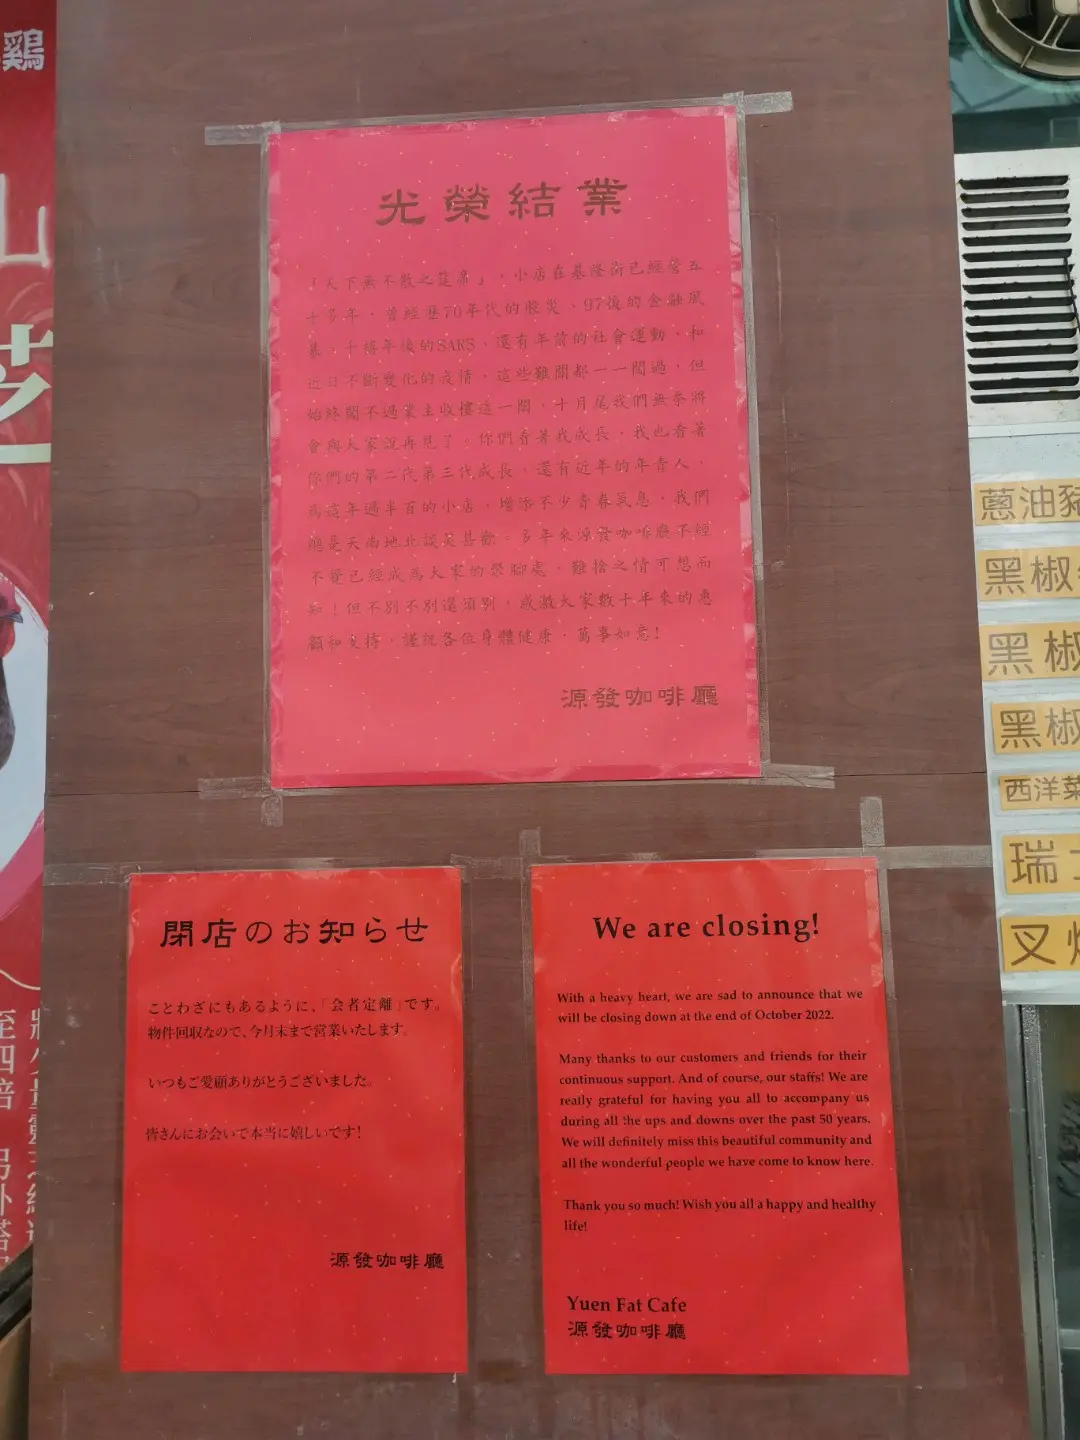 鷄
山
芝
光榮結業
「天下無不散之筵席」，小店在基隆街已經營五
十多年，曾經歷70年代的股災、97後的金融風
暴、千禧年後的SARS、還有年前的社會運動，和
近日不斷變化的疫情，這些難關都一一闖過，但
始終闖不過業主收樓這一關，十月尾我們無奈將
會與大家說再見了。你們看著我成長，我也看著
你們的第二代第三代成長，還有近年的年青人，
為這年過半百的小店，增添不少青春氣息，我們
總是天南地北談笑甚歡。多年來源發咖啡廳不經
不覺已經成為大家的聚腳處，難捨之情可想而
知！但不別不別還須別，感激大家數十年來的惠
顧和支持，謹祝各位身體健康，萬事如意！
源發咖啡廳
閉店のお知らせ
ことわざにもあるように、「会者定離」です。
物件回収なので、今月末まで営業いたします。
いつもご愛顧ありがとうございました。
皆さんにお会いで本当に嬉しいです！
源發咖啡廳
We are closing!
With a heavy heart, we are sad to announce that we
will be closing down at the end of October 2022.
Many thanks to our customers and friends for their
continuous support. And of course, our staffs! We are
really grateful for having you all to accompany us
during all the ups and downs over the past 50 years.
We will definitely miss this beautiful community and
all the wonderful people we have come to know here.
Thank you so much! Wish you all a happy and healthy
life!
Yuen Fat Cafe
源發咖啡廳
蔥油豬
黑椒
黑椒
黑椒
西洋菜
瑞士
叉燒
至四倍